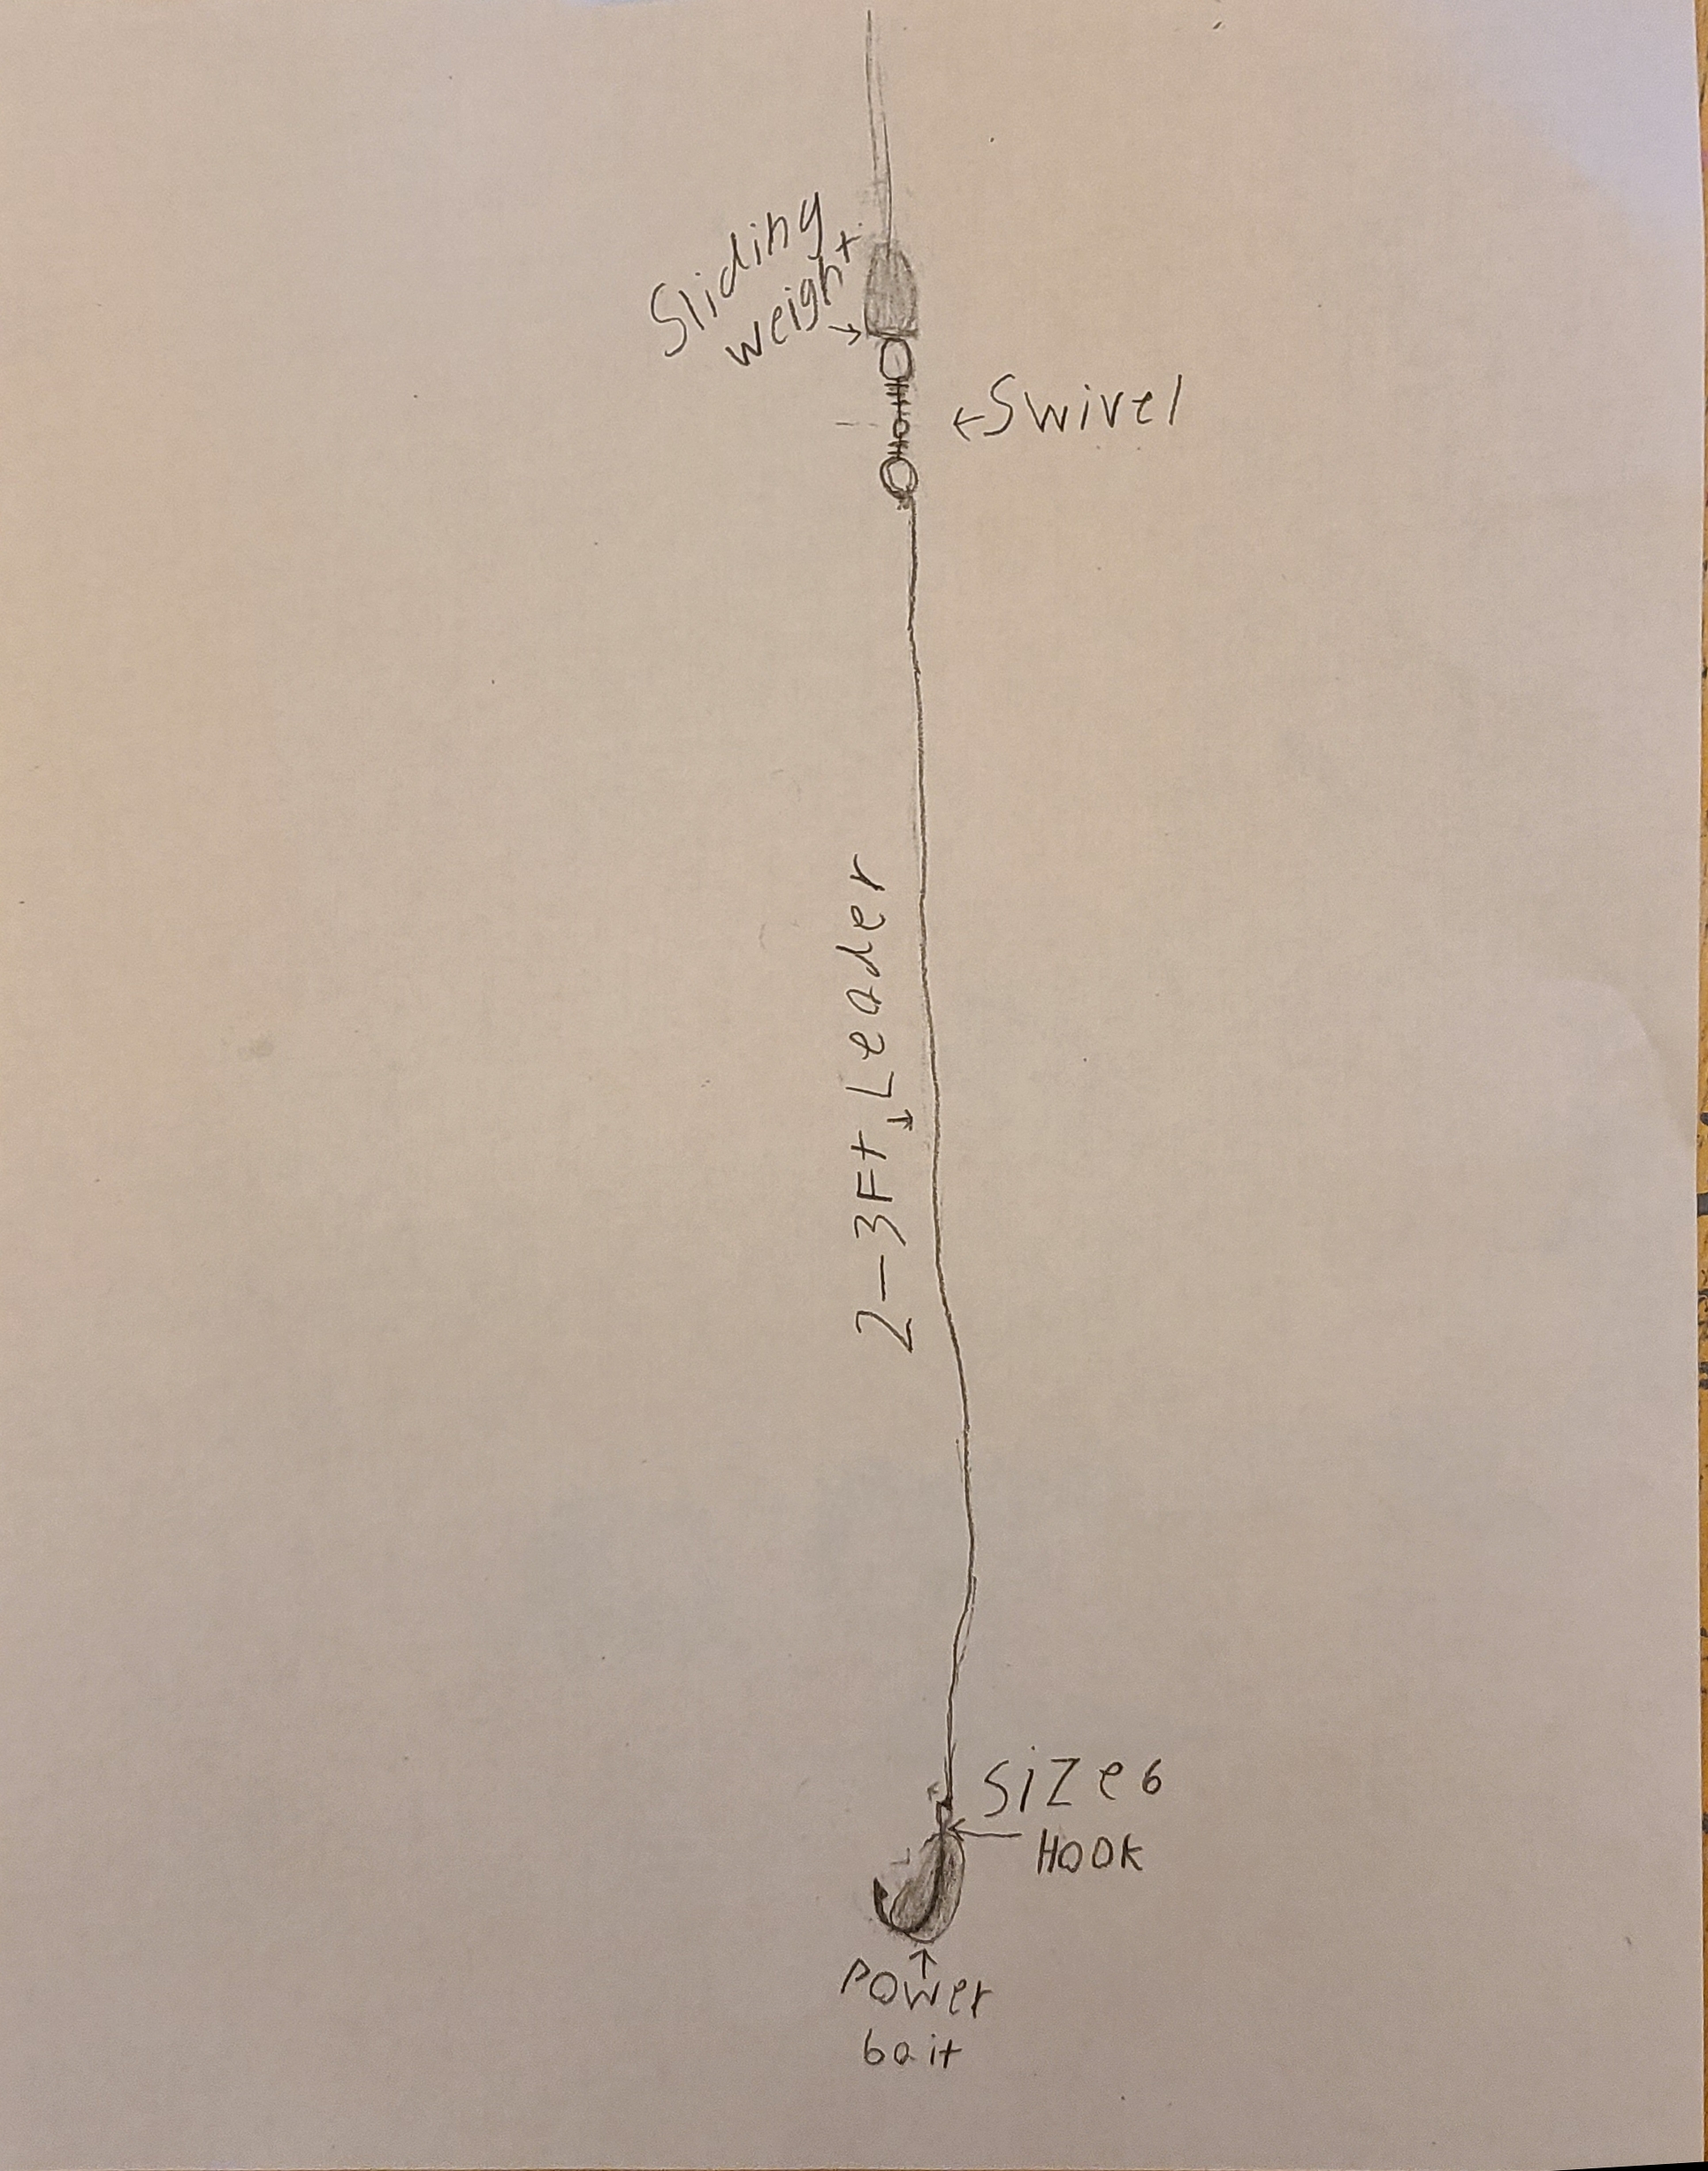 Sliding
weight
Swivel
2-3Ft Leader
Size 6
Hook
Power
bait